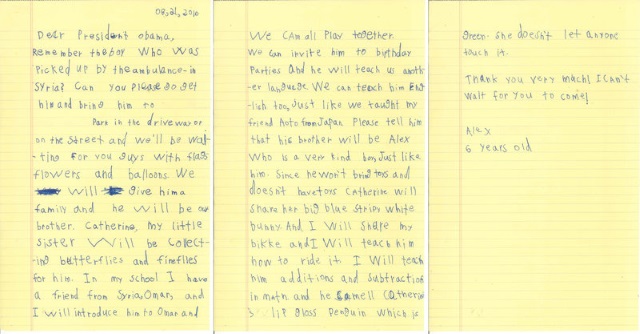 08,21,2016
Dear President obama,
Remember the boy who was
picked up by the ambulance in
Syria? Can you please go get
him and bring him to
Park in the driveway or
on the street and we'll be wai-
ting for you guys with flags
flowers and balloons. We
will give him a
family and he will be our
brother. Catherine, my little
sister will be collect-
ing butterflies and fireflies
for him. In my school I have
a friend from Syria, Omar, and
I will introduce him to Omar and
We can all play together.
We can invite him to birthday
parties and he will teach us anoth-
er language. We can teach him Eng-
lish too, Just like we taught my
friend Aoto from Japan. Please tell him
that his brother will be Alex
who is a very kind boy, Just like
him. Since he won't bring toys and
doesn't have toys Catherine will
share her big blue stripy white
bunny. And I will share my
bikke and I will teach him
how to ride it. I will teach
him additions and subtractions
in math and he Catherine
's lip gloss penguin which is
green. She doesn't let anyone
touch it.
Thank you very mach! I can't
wait for you to come!
Alex
6 years old